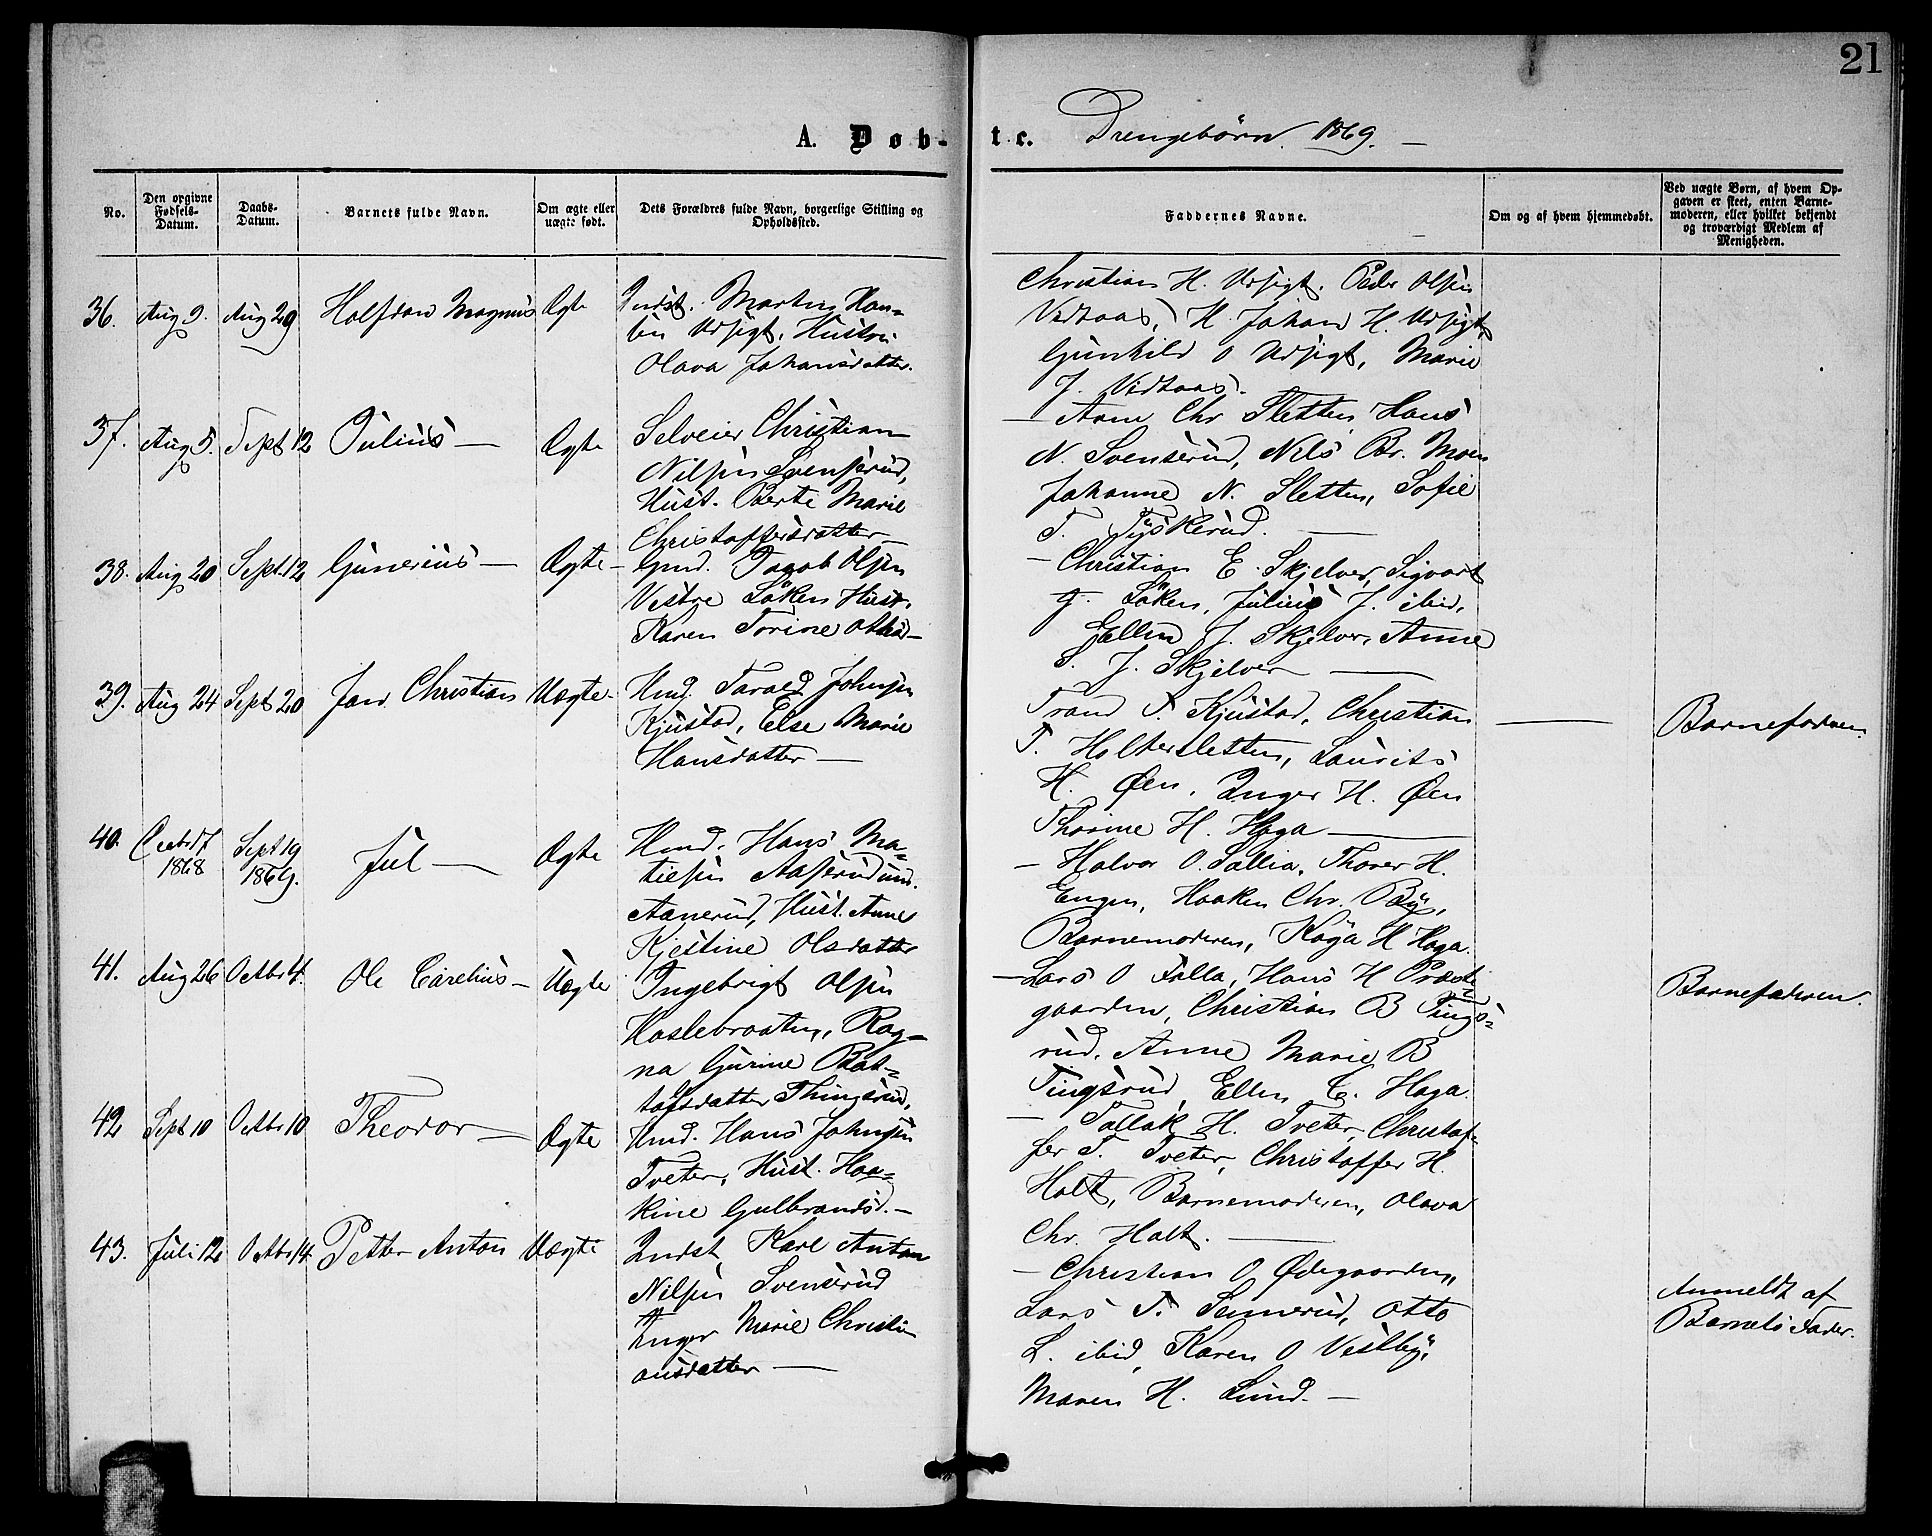 21
A. Døb-
t e. Drengebørn. 1869. —
No.
Den opgivne Fødsels-Datum.
Daabs-Datum.
Barnets fulde Navn.
Om ægte eller uægte født.
Dets Forældres fulde Navn, borgerlige Stilling og Opholdssted.
Faddernes Navne.
Om og af hvem hjemmedøbt.
Ved uægte Børn, af hvem Opgaven er skeet, enten Barnemoderen, eller hvilket bekjendt og troværdigt Medlem af Menigheden.
36. Aug 9. Aug 29 Halfdan Magnus Ægte Indst. Martin Han-
sen Udsigt, Hustru
Olava Johansdatter.
Christian H. Udsigt. Peder Olsen
Vidtaas, H. Johan H. Udsigt
Gunhild O Udsigt, Marie
J. Vidtaas.
37. Aug 5. Sept 12 Julius — Ægte Selveier Christian
Nilsen Svenserud,
Hust. Berte Marie
Christoffersdatter —
— Arne Chr Sletten, Hans
N. Svenserud, Nils Br. Moen
Johanne N. Sletten, Sofie
T. Tÿskerud. —
38. Aug 20 Sept 12 Gunerius — Ægte — Gmd. Jacob Olsen
Vestre Løken Hust.
Karen Torine Olsd —
— Christian E. Skjelver, Sigvart
J. Løken, Julius J. ibid,
Ellen J. Skjelver, Anne
S. J. Skjelver —
39. Aug 24 Sept 20 Jan Christian Uægte — Hmd. Tarald Johnsen
Kjustad, Else Marie
Hansdatter —
Trond T. Kjustad, Christian
T. Holtersletten, Laurits
H. Øen, Inger H. Øen
Thorine H. Haga —
— Barnefaderen.
40. 1868 Sept 19 1869. Jul — Ægte Hmd. Hans Ma-
tiesen Aaserud und.
Aanerud, Hust. Anne
Kjestine Olsdatter
— Halvor O. Sollia, Thorer H.
Engen, Haaken Chr. Bÿ,
Barnemoderen, Kaja H Haga.
41. Aug 26 Octbr 4. Ole Carelius — Uægte Ingebrigt Olsen
Haslebraaten, Rag-
na Gurine Bot-
tolfsdatter Thingsrud,
— Lars O Folla, Hans H Præste-
gaarden, Christian B Tings-
rud, Anne Marie B
Tingsrud, Ellen C. Haga.
Barnefaderen.
42 Sept 10 Octbr 10 Theodor — Ægte Hmd. Hans Johnsen
Tveter, Hust. Haa-
kine Gulbrandsd. —
— Tollak H. Tveter, Christof-
fer T. Tveter, Christoffer H.
Holt, Barnemoderen, Olava
Chr. Holt. —
43. Juli 12 Octbr 14 Petter Anton Uægte Indst. Karl Anton
Nilsen Svenserud
Inger Marie Christi-
ansdatter —
— Christian O Ødegaarden,
Lars T. Sennerud, Otto
L. ibid, Karen O Vestbÿ,
Maren H. Lund. —
Anmeldt af
Barnets Fader.